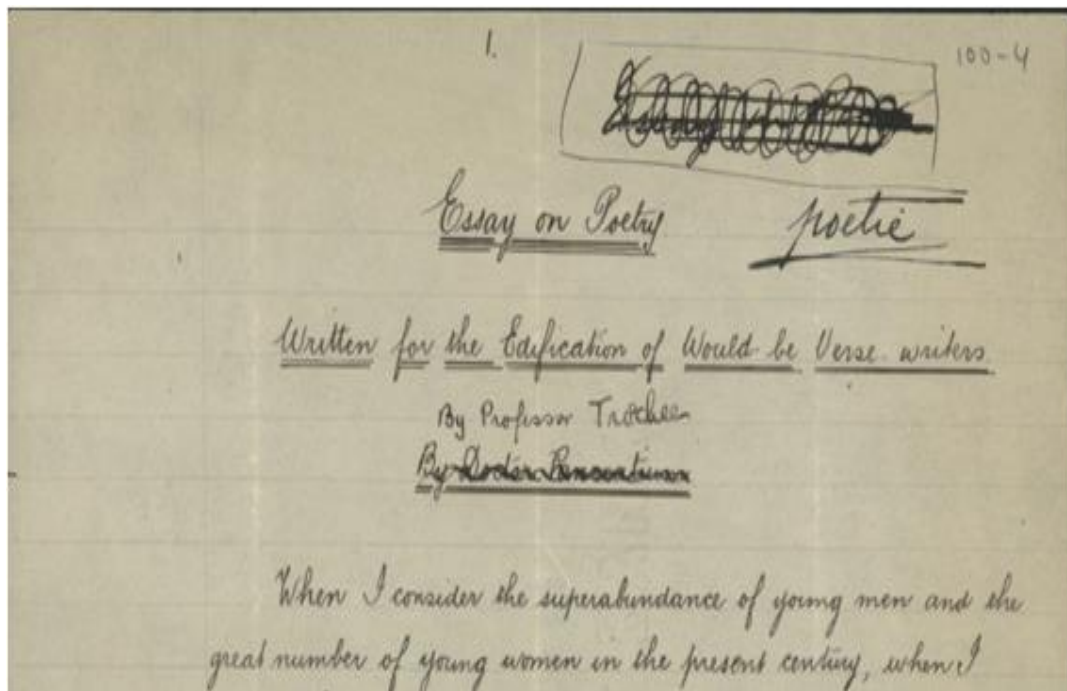 1.
100-4
Essay on Poetry
poetic
Written for the Edification of Would-be Verse-writers.
By Professor Trochee
By Doctor
When I consider the superabundance of young men and the
great number of young women in the present century, when I